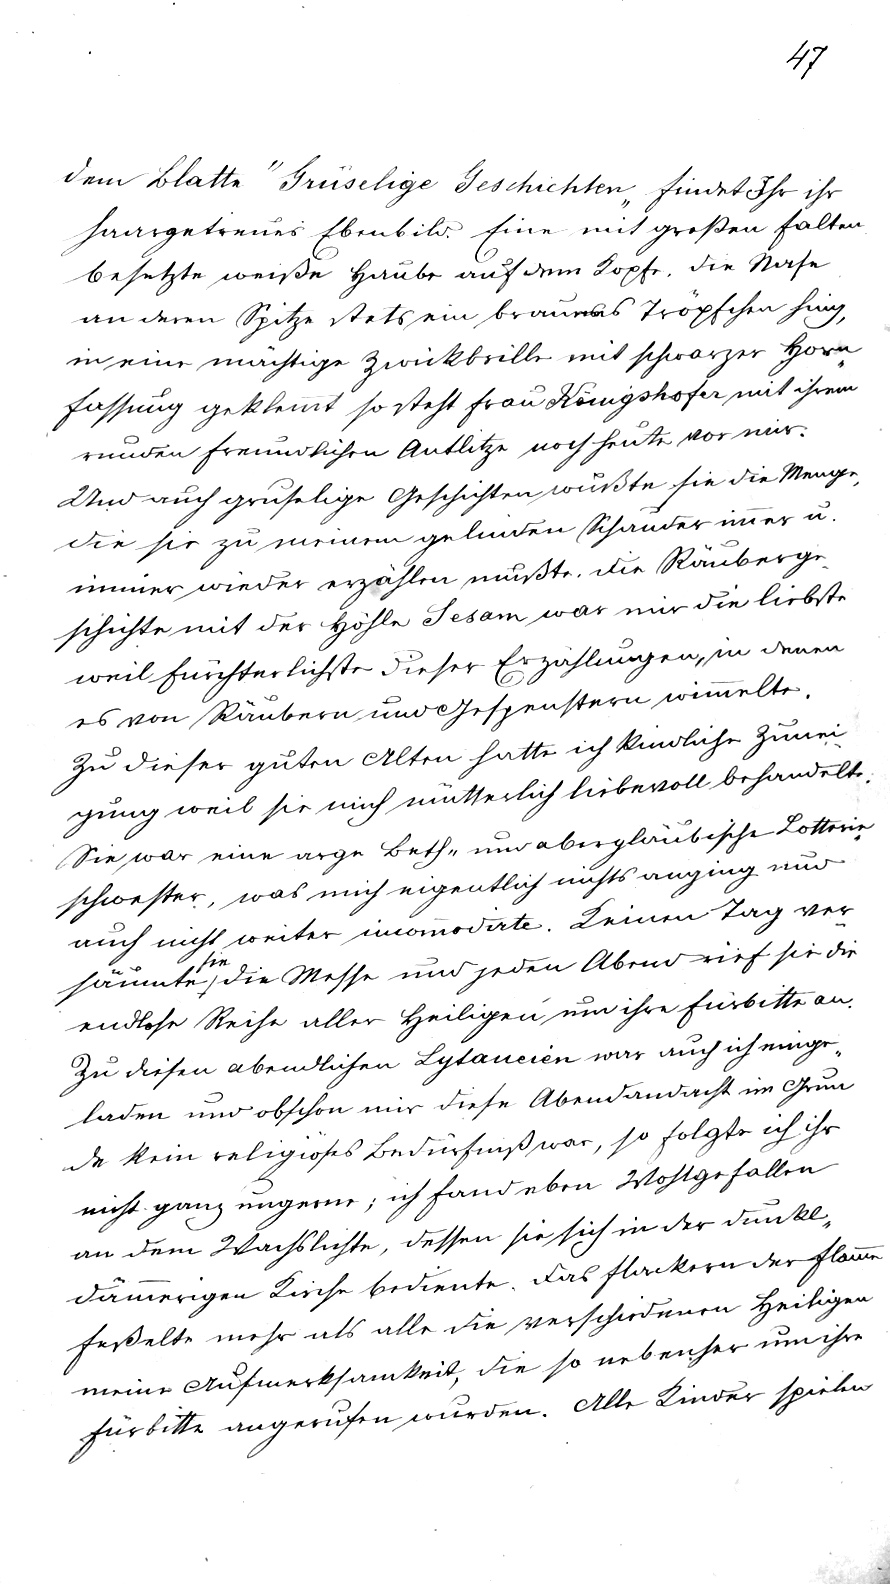 47
dem Blatte "Grüselige Geschichten„ findet Ihr ihr
haargetreues Ebenbild. Eine mit großen Falten
besetzte weiße Haube auf dem Kopfe, die Nase
an deren Spitze stets ein braunes Tröpfchen hing,
in eine mächtige Zwickbrille mit schwarzer Horn„
fassung geklem̅t so steht Frau Königshofer mit ihrem
runden freundlichen Antlitze noch heute vor mir.
Und auch gruselige Geschichten wußte sie die Menge,
die sie zu meinem gelinden Schauder im̅er u.
immer wieder erzählen mußte. Die Räuberge„
schichte mit der Höhle Sesam war mir die liebste
weil fürchterlichste dieser Erzählungen, in denen
es von Räubern und Gespenstern wim̅elte.
Zu dieser guten Alten hatte ich kindliche Zunei„
gung weil sie mich mütterlich liebevoll behandelte.
Sie war eine arge Beth„ und abergläubische Lotterie„
schwester, was mich eigentlich nichts anging und
auch nicht weiter incom̅odirte. Keinen Tag ver„
säumte sie die Messe und jeden Abend rief sie die
endlose Reihe aller Heiligen um ihre Fürbitte an.
Zu diesen abendlichen Lytaneien war auch ich einge„
laden und obschon mir diese Abendandacht im Grun
de kein religiöses Bedürfniß war, so folgte ich ihr
nicht ganz ungerne; ich fand eben Wohlgefallen
an dem Wachslichte, dessen sie sich in der dunkel„
däm̅erigen Kirche bediente. Das Flackern der Flam̅e
feßelte mehr als alle die verschiedenen Heiligen
meine Aufmerksamkeit, die so nebenher um ihre
Fürbitte angerufen wurden. Alle Kinder spielen